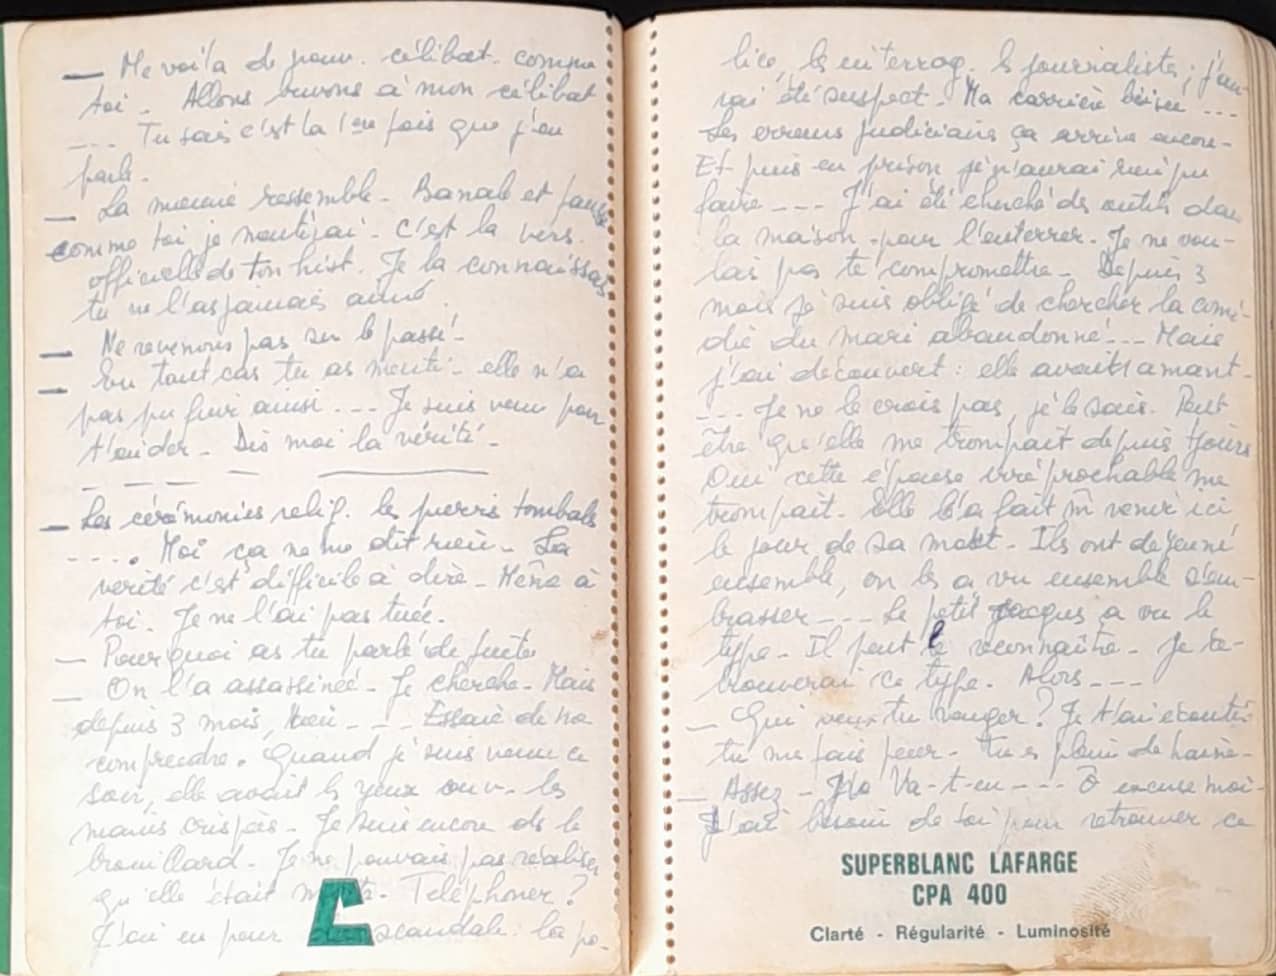 — Me voilà de nouv. célibat. comme
toi. Allons buvons à mon célibat
--- Tu sais c'est la 1ère fois que j'en
parle.
— La mienne ressemble. Banale et fausse
comme toi je mentirai. C'est la vers.
officielle de ton hist. Je la connaissais
tu ne l'as jamais aimé.
— Ne revenons pas sur le passé.
— En tout cas tu as menti. elle n'a
pas pu fuir ainsi --- Je suis venu pour
t'aider. Dis moi la vérité.
— Les cérémonies relig. les pierres tombales
---- Moi ça ne me dit rien. La
vérité c'est difficile à dire. Même à
toi. Je ne l'ai pas tuée.
— Pourquoi as tu parlé de fuite
— On l'a assassinée. Je cherche. Mais
depuis 3 mois, rien --- Essaie de me
comprendre. Quand je suis venu ce
soir, elle avait les yeux ouv. les
mains crispées. Je suis encore ds le
brouillard. Je ne pouvais pas réaliser
qu'elle était morte. Téléphoner ?
J'ai eu peur scandale. la po-
lice, les interrog. les journalistes ; j'au-
rai été suspect. Ma carrière brisée ---
Les erreurs judiciaires ça arrive encore.
Et puis en prison je n'aurai rien pu
faire --- J'ai été cherché des outils dans
la maison pour l'enterrer. Je ne vou-
lais pas te compromettre. Depuis 3
mois je suis obligé de chercher la comé-
die du mari abandonné --- Mais
j'ai découvert : elle avait 1 amant.
--- Je ne le crois pas, je le sais. Peut
être qu'elle me trompait depuis tjours
Oui cette épouse irréprochable me
trompait. Elle l'a fait m̂ venir ici
le jour de sa mort. Ils ont déjeuné
ensemble, on les a vu ensemble s'em-
brasser --- Le petit Jacques a vu le
type. Il peut le reconnaître. Je re-
trouverai ce type. Alors ---
— Qui veux-tu venger ? Je t'ai écouté.
tu me fais peur. Tu es plein de haine.
— Assez. Va-t-en --- Ô excuse moi.
J'ai besoin de toi pour retrouver ce
SUPERBLANC LAFARGE
CPA 400
Clarté - Régularité - Luminosité